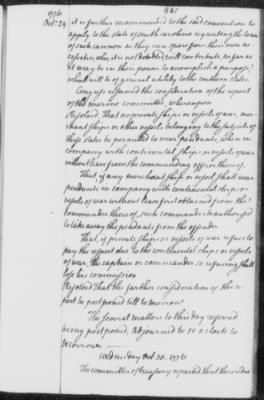 1776
Octr 29
it is further recommended to the said convention to
apply to the state of south carolina requesting the loan
of such cannon as they can spare from their own ne-
cessities, who, it is not doubted, will contribute, as far as
it may be in their power to accomplish a purpose,
which will be of general utility to the southern states.
Congress resumed the consideration of the report
of the marine committee whereupon
Resolved, That no private ships or vessels of war, mer-
chant ships or other vessels belonging to the subjects of
these states be permitted to wear pendants, when in
company with continental ships or vessels of war
without leave from the commanding officer thereof.
That, if any merchant ship or vessel shall wear
pendants in company with continental ships or
vessels of war without leave first obtained from the
commander thereof, such commander be authorised
to take away the pendants from the offender
That, if private ships or vessels of war refuse to
pay the respect due to the continental ships or vessels
of war, the captain or commander so refusing shall
lose his commission
Resolved That the farther consideration of the re-
port be postponed till to morrow
The several matters to this day referred
being postponed, adjourned to 10 o clock to
morrow
Wednesday Oct 30. 1776
The committee of treasury reported that there is due